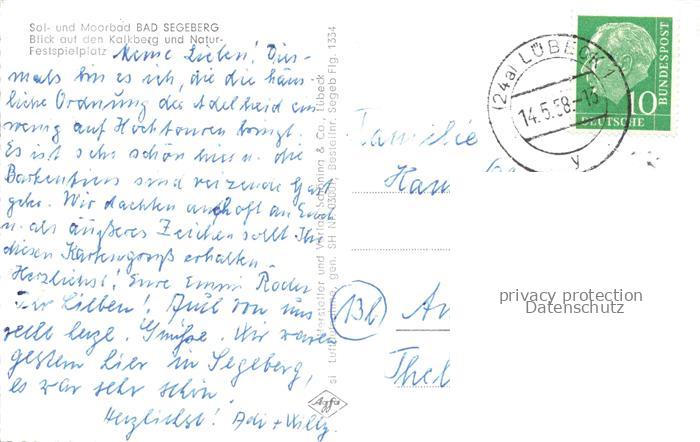 Sol- und Moorbad BAD SEGEBERG
Blick auf den Kalkberg und Natur-
Festspielplatz
Meine Lieben! Dies-
mals bin es ich, die die häus-
liche Ordnung der Adelheid ein
wenig auf Hochtouren bringt.
Es ist sehr schön hier u. die
sind reizende Gast
geber. Wir dachten an Euch
u. als äußeres Zeichen sollt Ihr
diesen Kartengruß erhalten.
Herzlichst! Eure Emmi
Ihr Lieben! Auch von uns
recht herzl. Grüße. Wir waren
gestern hier in Segeberg,
es war sehr schön.
Herzlichst! Adi + Willy.
Hersteller und Verlag Schöning & Co., Lübeck
gen. SH Nr.
Bestellnr. Segeb Flg. 1334
Agfa
(24a) LÜBECK 1
14.5.58-13
y
10
DEUTSCHE
BUNDESPOST
Familie
Han
An
privacy protection
Datenschutz